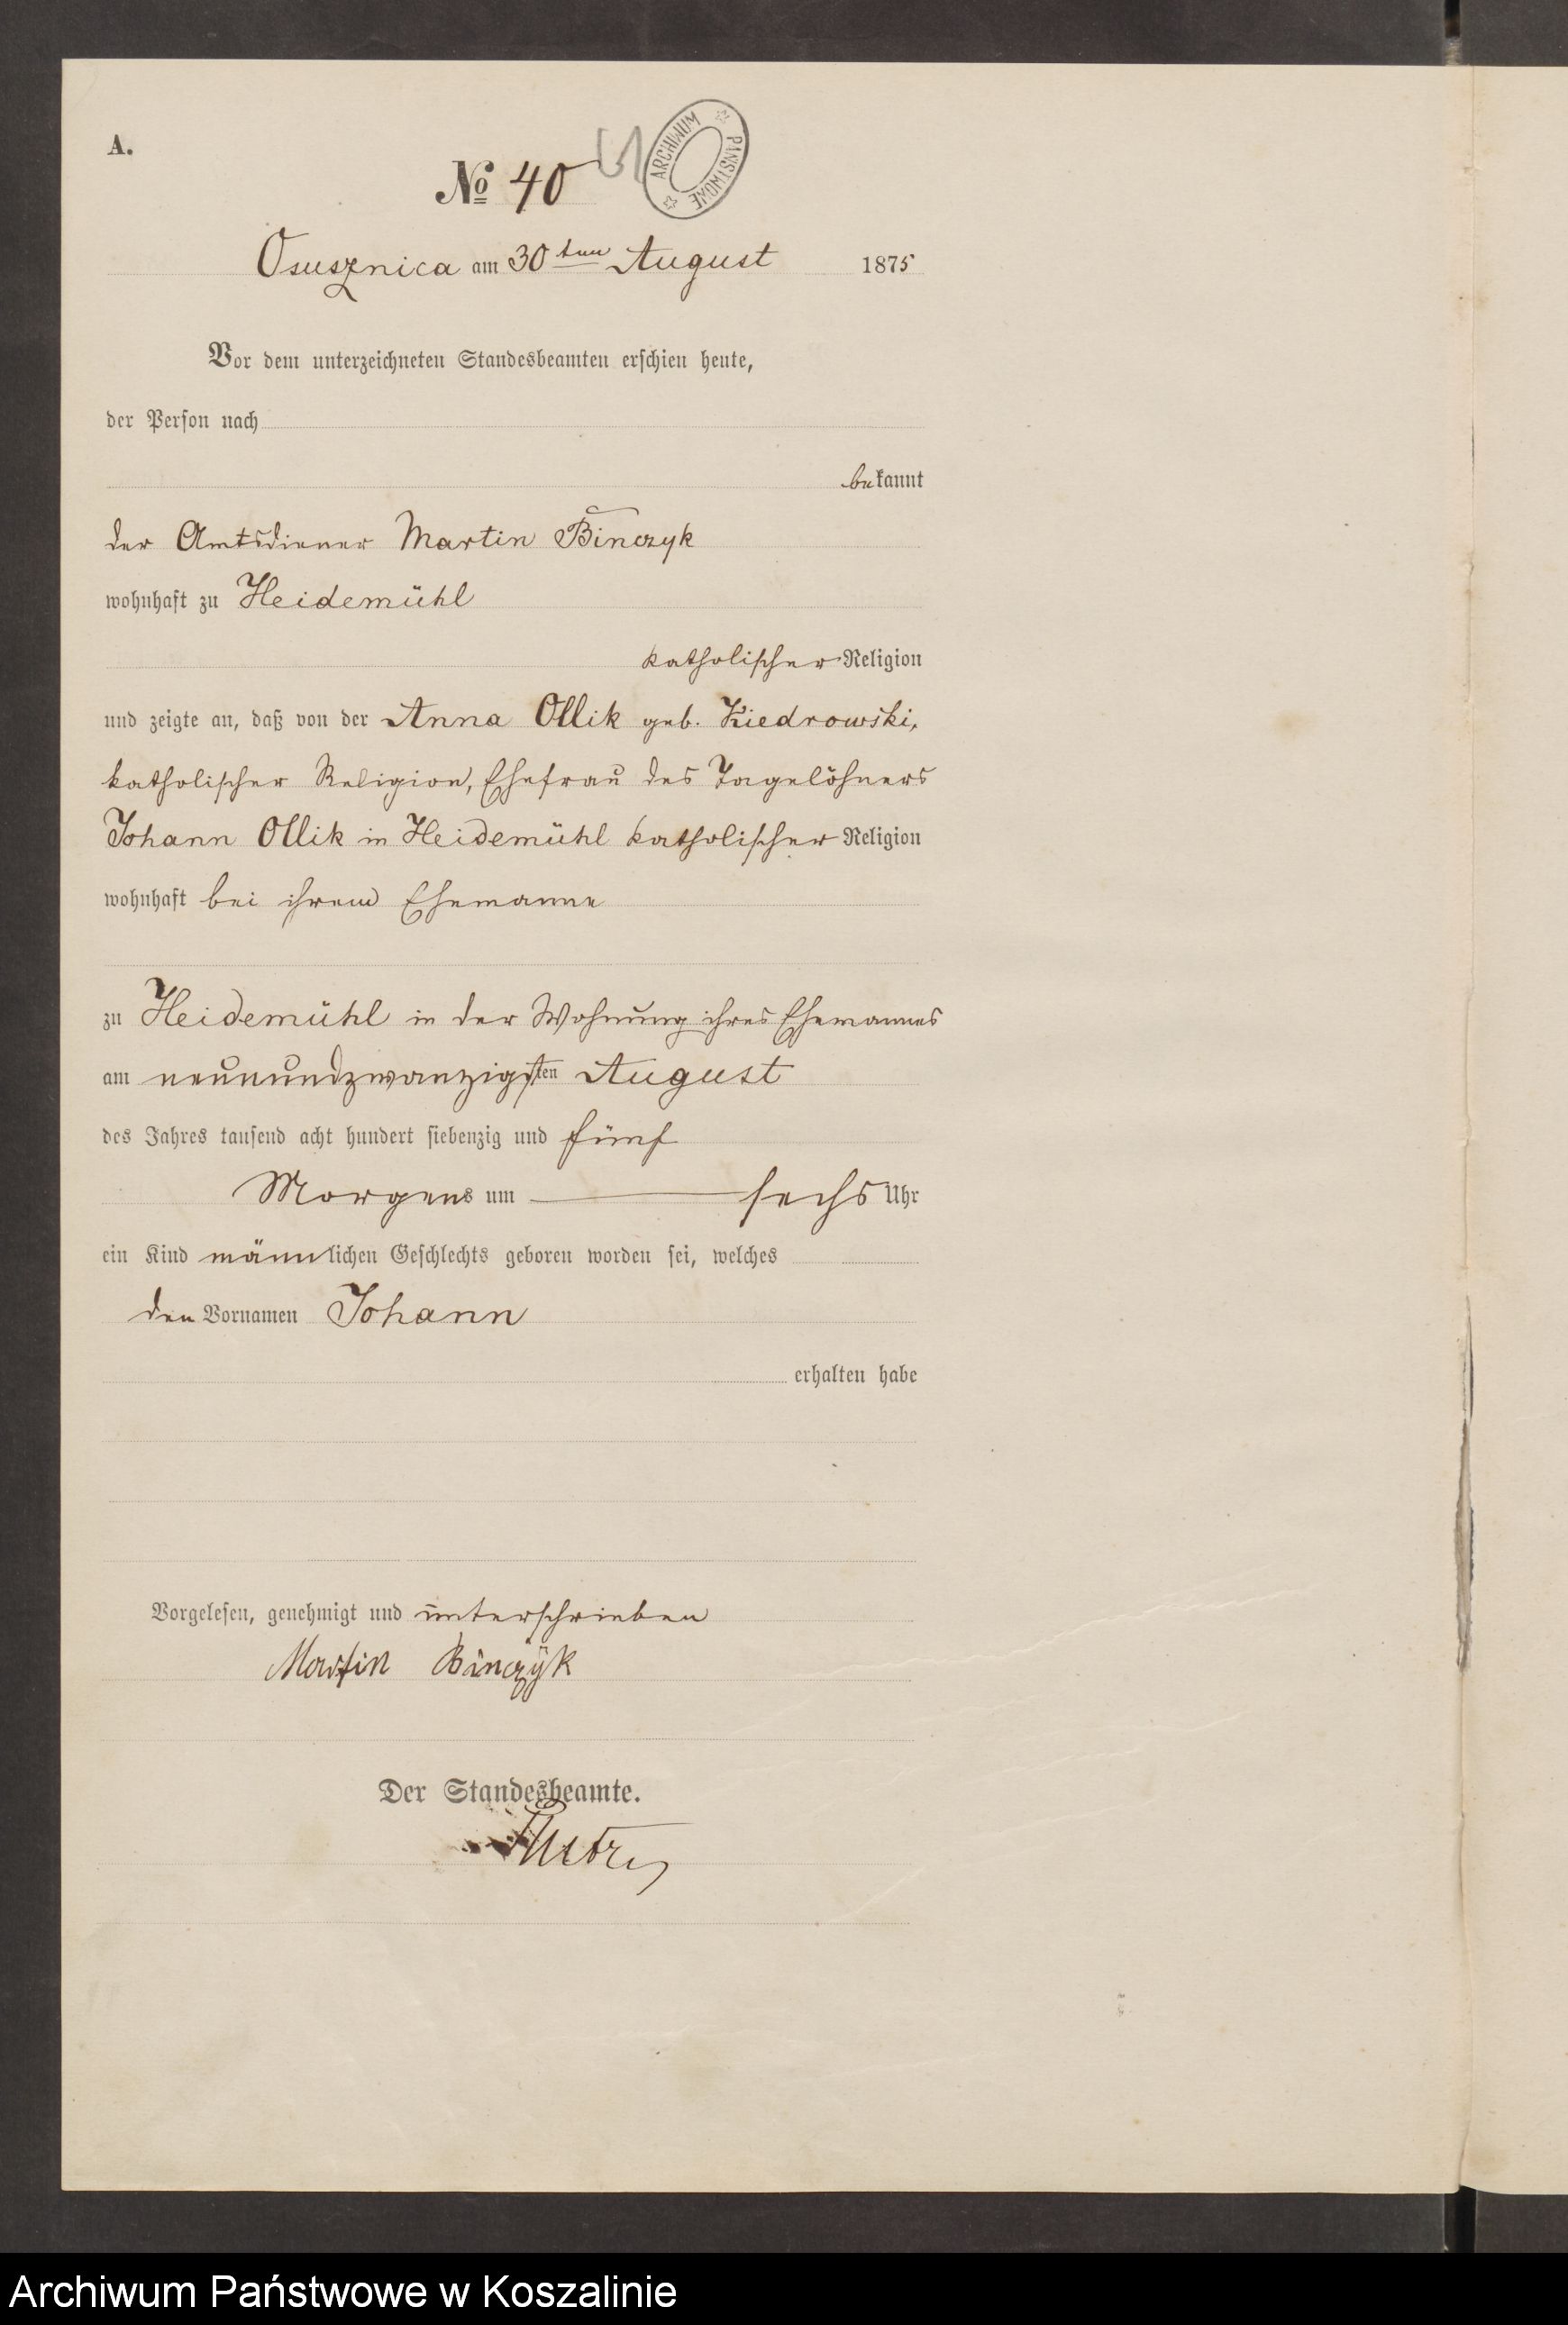 A.
№ 40
ARCHIWUM PAŃSTWOWE
Osusznica am 30ten August 1875
Vor dem unterzeichneten Standesbeamten erschien heute,
der Person nach
bekannt
der Amtsdiener Martin Binczyk
wohnhaft zu Heidemühl
katholischer Religion
und zeigte an, daß von der Anna Ollik geb. Kiedrowski,
katholischer Religion, Ehefrau des Tagelöhners
Johann Ollik in Heidemühl katholischer Religion
wohnhaft bei ihrem Ehemanne
zu Heidemühl in der Wohnung ihres Ehemannes
am neunundzwanzigsten August
des Jahres tausend acht hundert siebenzig und fünf
Morgens um sechs Uhr
ein Kind männlichen Geschlechts geboren worden sei, welches
den Vornamen Johann
erhalten habe
Vorgelesen, genehmigt und unterschrieben
Martin Binczyk
Der Standesbeamte.
Archiwum Państwowe w Koszalinie